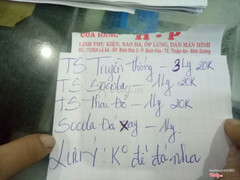 CỬA HÀNG H-P
LINH PHỤ KIỆN, BAO DA, ỐP LƯNG, DÁN MÀN HÌNH
TS Truyền thống - 3ly 20K
TS Socola - 1ly 20K
TS Thái Đỏ - 1ly 20K
Socola Đá xay - 1ly
Lưu ý: Ko để đá nha